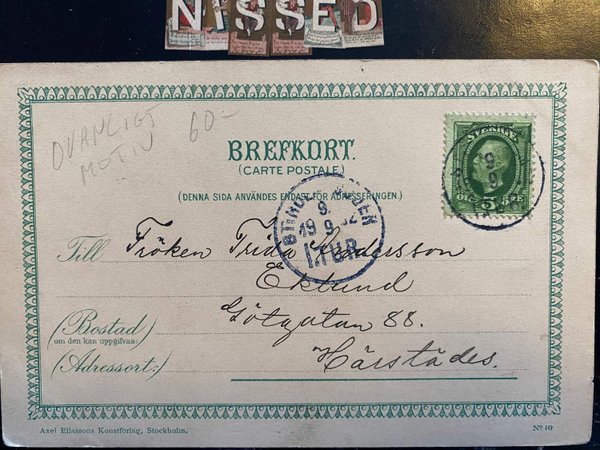 NISSED
OVANLIGT
MOTIV
60-
BREFKORT.
(CARTE POSTALE)
(DENNA SIDA ANVÄNDES ENDAST FÖR ADRESSERINGEN.)
SVERIGE
5
9
9
8
19 9 02
1.TUR
Till Fröken Frida
Eklund
(Bostad) Götgatan 88.
om den kan uppgifvas:
(Adressort:) Härstädes.
Axel Eliassons Konstförlag, Stockholm.
No 10